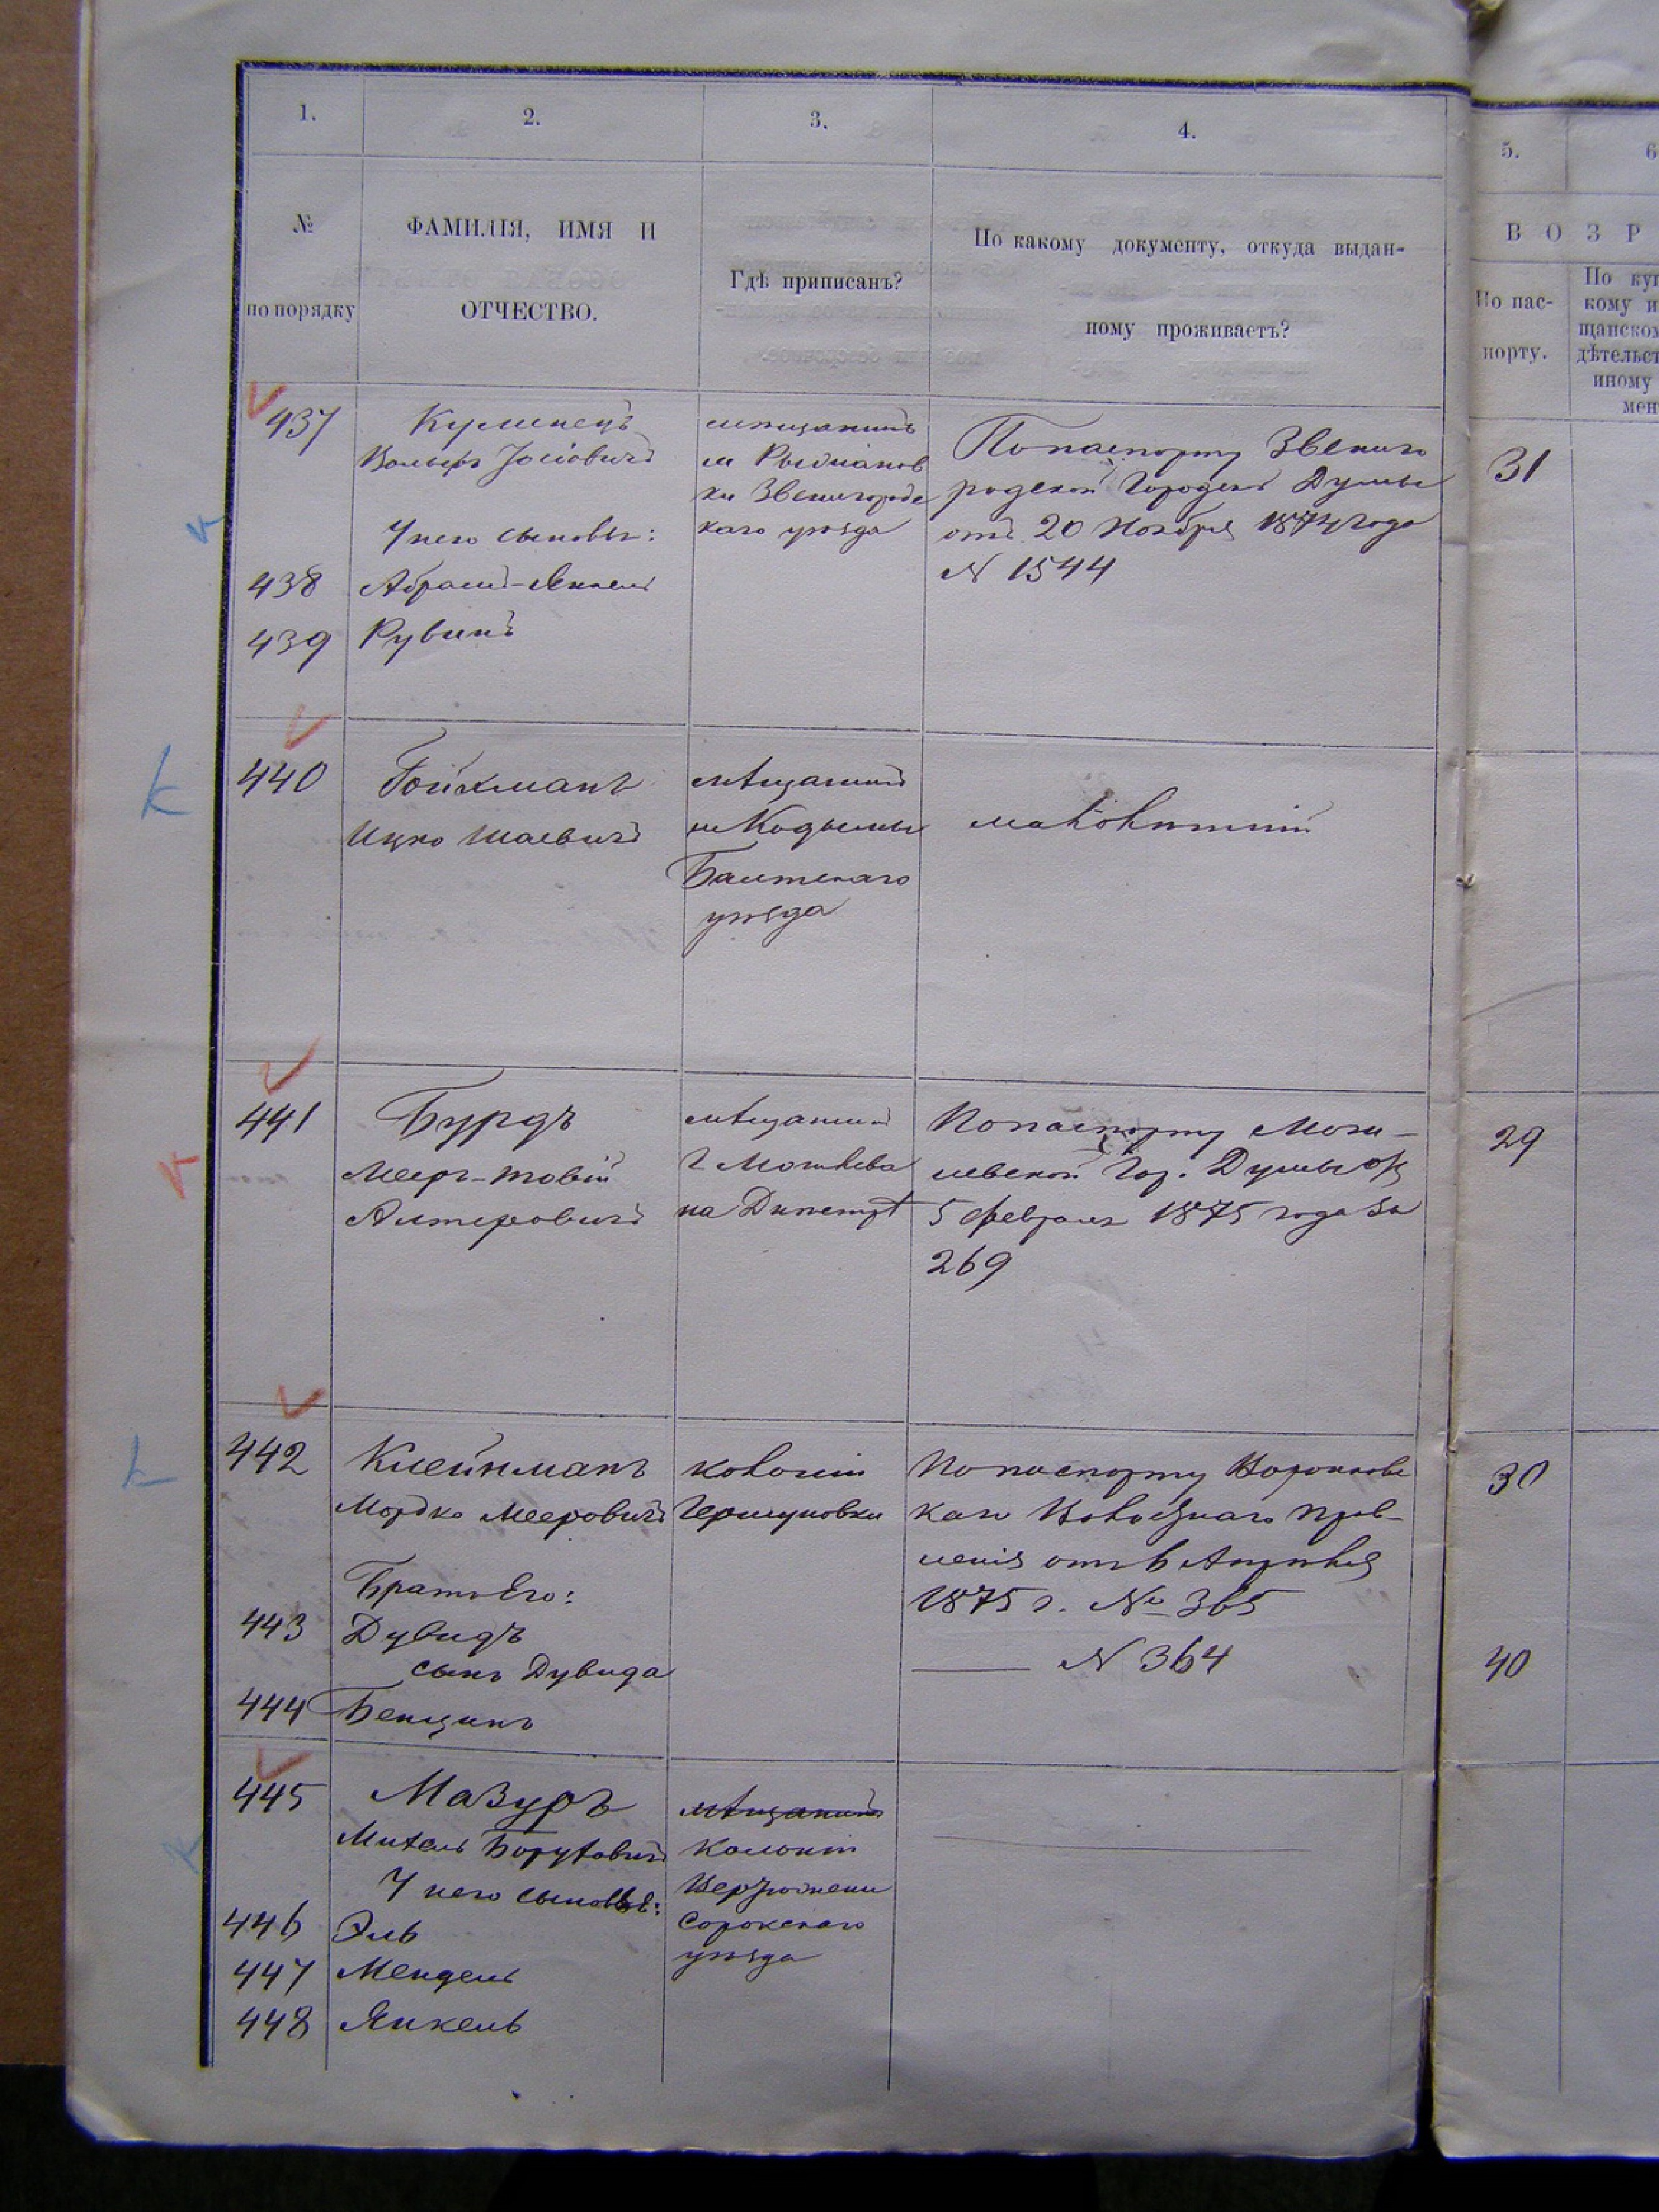 1. 2. 3. 4. 5. 6
№ по порядку
ФАМИЛІЯ, ИМЯ И
ОТЧЕСТВО.
Гдѣ приписанъ?
По какому документу, откуда выдан-
ному проживаетъ?
ВОЗР
По пас-
порту.
По куп
кому и
щанском
дѣтельст
иному
мен
437
Вольфъ Іосіовичъ
У него сыновья:
438 Абрамъ-Янкель
439 Рувинъ
мѣщанинъ
м Рыжанов
ки Звенигородс
каго уѣзда
По паспорту Звениго
родской Городской Думы
отъ 20 Ноября 1874 года
N 1544
31
440 Гойхманъ
Ицко Шаевичъ
мѣщанинъ
м Кодымы
Балтскаго
уѣзда
441 Бурдъ
Мееръ-Товій
Алтеровичъ
мѣщанинъ
г Могилева
на Днестрѣ
По паспорту Моги-
левской Гор. Думы отъ
5 февраля 1875 года за
269
29
442 Клейнманъ
Мордко Мееровичъ
Братъ Его:
443 Дувидъ
сынъ Дувида
444 Бенционъ
колоніи
Гершуновки
По паспорту Воронков
каго Волостнаго Прав-
ленія отъ 6 Апрѣля
1875 г. № 365
N 364
30
40
445 Мазуръ
Михель Боруховичъ
У него сыновья:
446 Эль
447 Мендель
448 Янкель
мѣщанинъ
Колоніи
Вертюжени
Сорокскаго
уѣзда